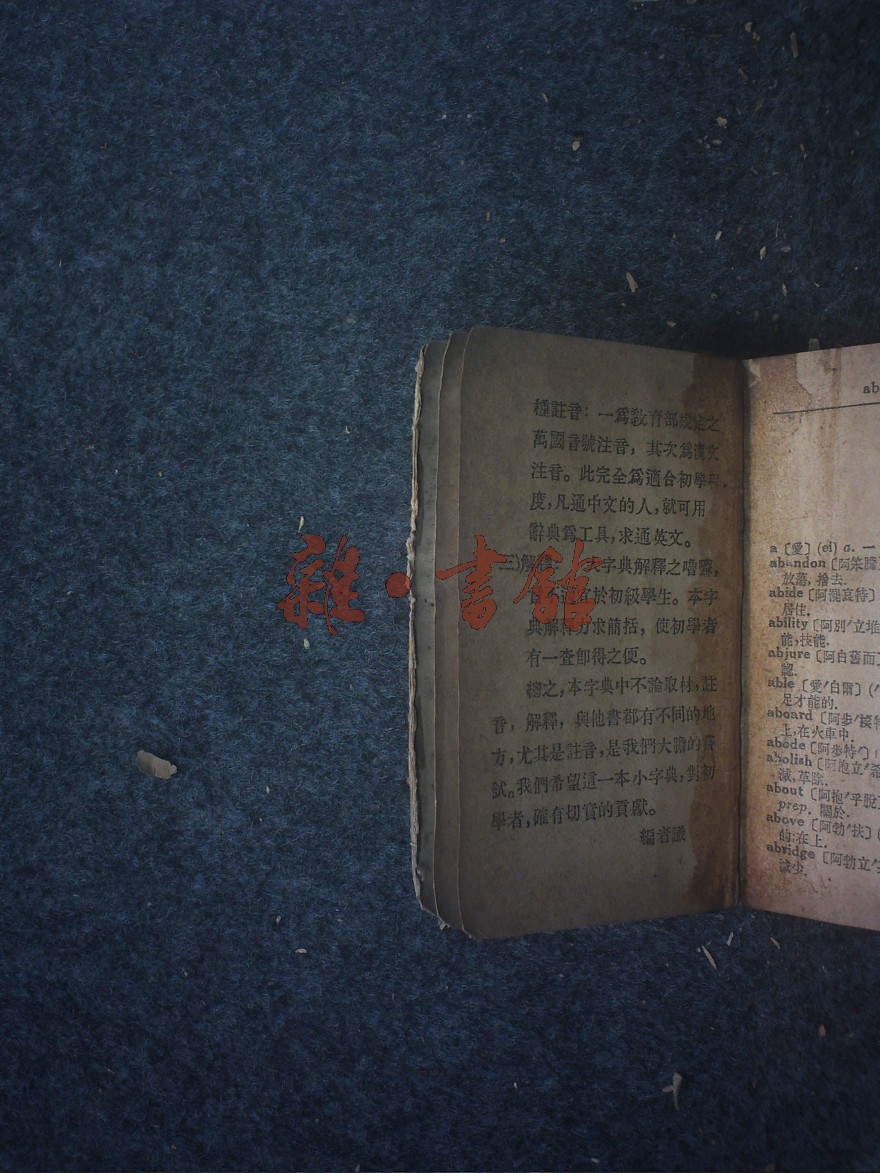 種註音:一爲敎育部規定之
萬國音號注音,其次爲漢文
注音。此完全爲適合初學程
度,凡通中文的人,就可用
辭典爲工具,求通英文。
(三)解釋 字典解釋之嚕囌,
不適宜於初級學生。本字
典解釋力求簡括,使初學者
有一查卽得之便。
總之,本字典中不論取材,註
音,解釋,與他書都有不同的地
方,尤其是註音,是我們大膽的嘗
試。我們希望這一本小字典,對初
學者,確有切實的貢獻。
編者識
雜·書館
ab
a〔愛〕(ei) a. 一
abandon〔阿笨騰〕
放蕩,捨去.
abide〔阿罷哀特〕
居住.
ability〔阿別ˊ立堆
能,技能.
abjure〔阿白舊而〕
認.
able〔愛ˊ白爾〕(
足才能的.
aboard〔阿步ˊ接特
上,在火車中.
abode〔阿步特ˊ〕(
abolish〔阿抱立ˊ希
滅,革除.
about〔阿抱ˊ乎脫〕
prep. 關於.
above〔阿勃ˊ扶〕(
的;在上.
abridge〔阿勃立ˊ
減少.